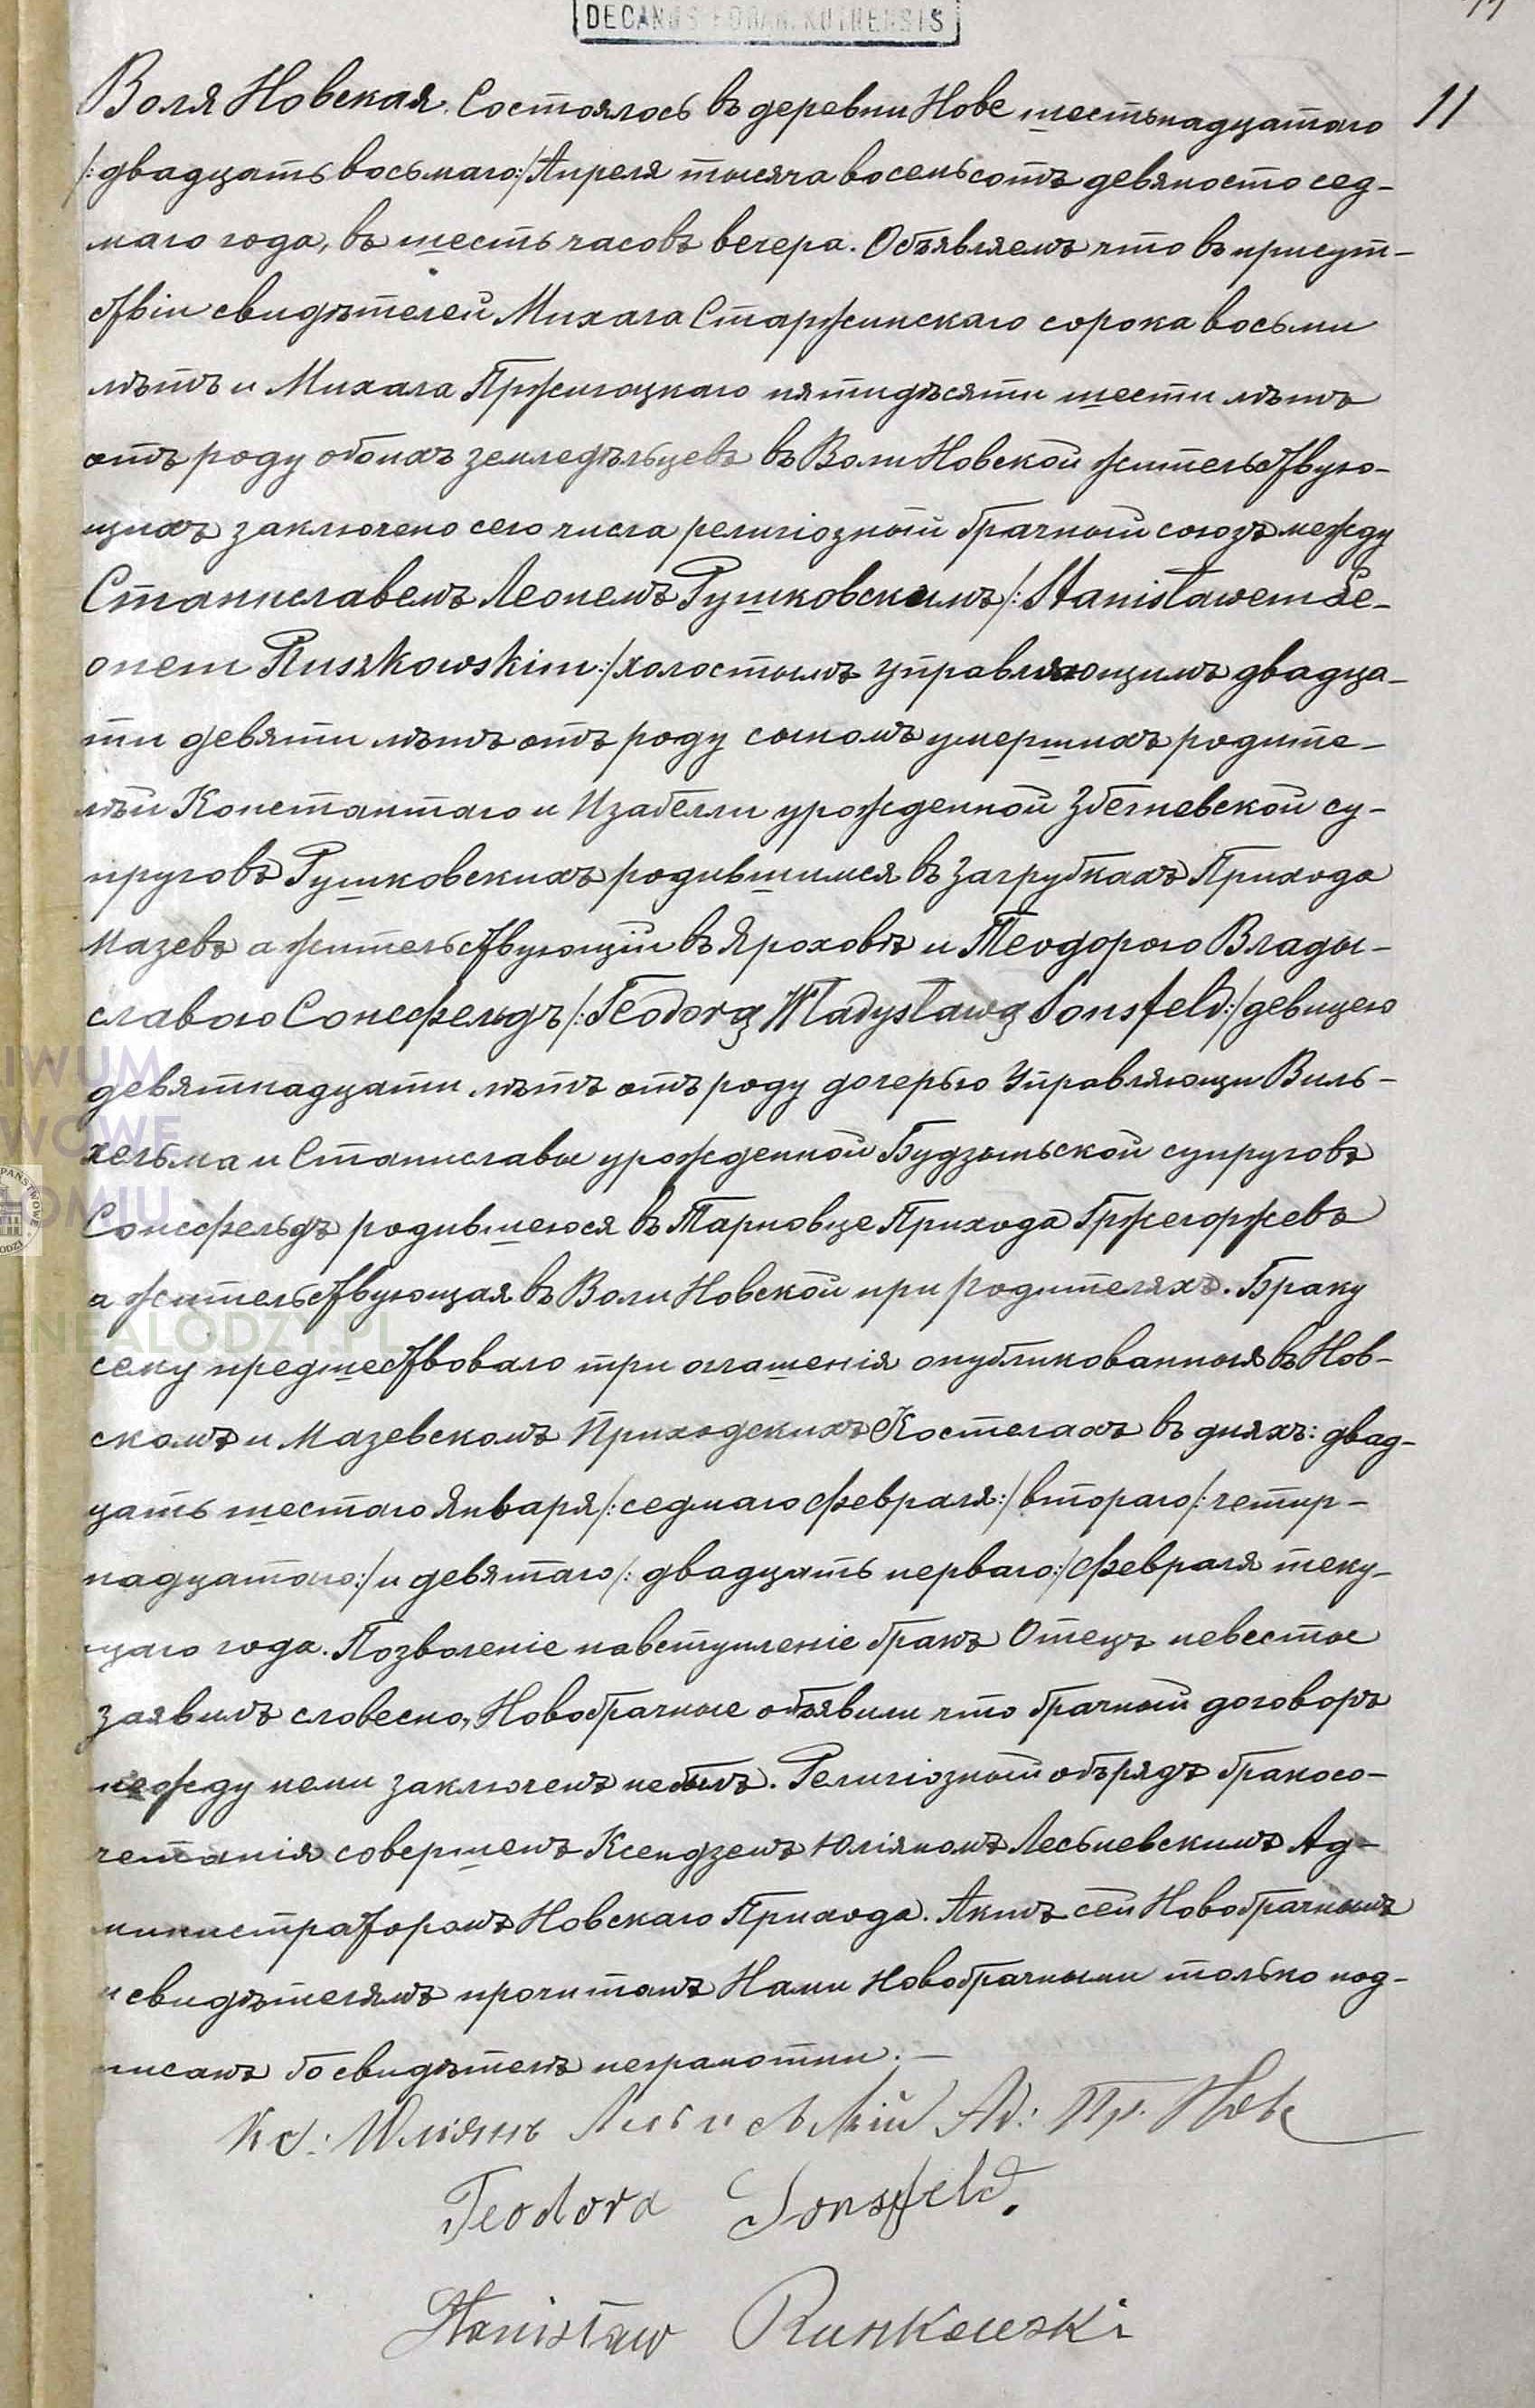 DECANUS FORAN. KUTNENSIS
11
Воля Новская. Состоялось въ деревни Нове шестьнадцатаго
/:двадцать восьмаго:/ Апреля тысяча восемьсотъ девяносто сед-
маго года, въ шесть часовъ вечера. Объявляемъ что въ присут-
ствіи свидѣтелей Михала Старжинскаго сорока восьми
лѣтъ и Михала Пржигоцкаго пятидѣсяти шести лѣтъ
отъ роду обоихъ земледѣльцевъ въ Воли Новской жительствую-
щихъ заключено сего числа религіозный брачный союзъ между
Станиславемъ Леонемъ Рушковскимъ /:Stanisławem Le-
onem Ruszkowskim:/ холостымъ управляющимъ двадца-
ти девяти лѣтъ отъ роду сыномъ умершихъ родите-
лѣй Константаго и Изабелли урожденной Збегневской су-
пруговъ Рушковскихъ родившимся въ Загрубкахъ Прихода
Мазевъ а жительствующій въ Яроховѣ и Теодорою Влады-
славою Сонсфельдъ /:Teodorą Władysławą Sonsfeld:/ девицею
девятнадцати лѣтъ отъ роду дочерью Управляющи Виль-
хельма и Станиславы урожденной Будзыньской супруговъ
Сонсфельдъ родившеюся въ Тарновце Прихода Гржегоржевъ
а жительствующая въ Воли Новской при родителяхъ. Браку
сему предшествовало три оглашенія опубликованныя въ Нов-
скомъ и Мазевскомъ Приходскихъ Костелахъ въ дняхъ: двад-
цать шестаго Января /:седмаго февраля:/ втораго /:четыр-
надцатаго:/ и девятаго /:двадцать перваго:/ февраля теку-
щаго года. Позволеніе на вступленіе бракъ Отецъ невесты
заявилъ словесно, Новобрачные объявили что брачный договоръ
между неми заключенъ небылъ. Религіозный обърядъ бракосо-
четанія совершенъ Ксендземъ Юліяномъ Лесьневскимъ Ад-
министраторомъ Новскаго Прихода. Актъ сей Новобрачнымъ
и свидѣтелямъ прочитанъ Нами Новобрачными только под-
писанъ бо свидѣтелъ неграмотни. —
Кс: Юліянъ Ад: Пр. Нове
Teodora Sonsfeld.
Stanisław Ruszkowski